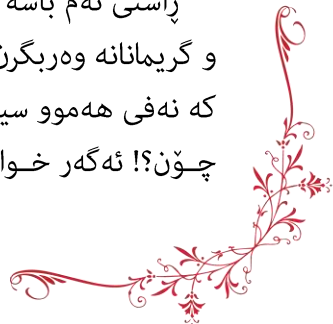 ڕاستی ئەم باسە
و گریمانانە وەربگرن
کە نەفی هەموو سی
چــۆن؟! ئەگەر خــوا